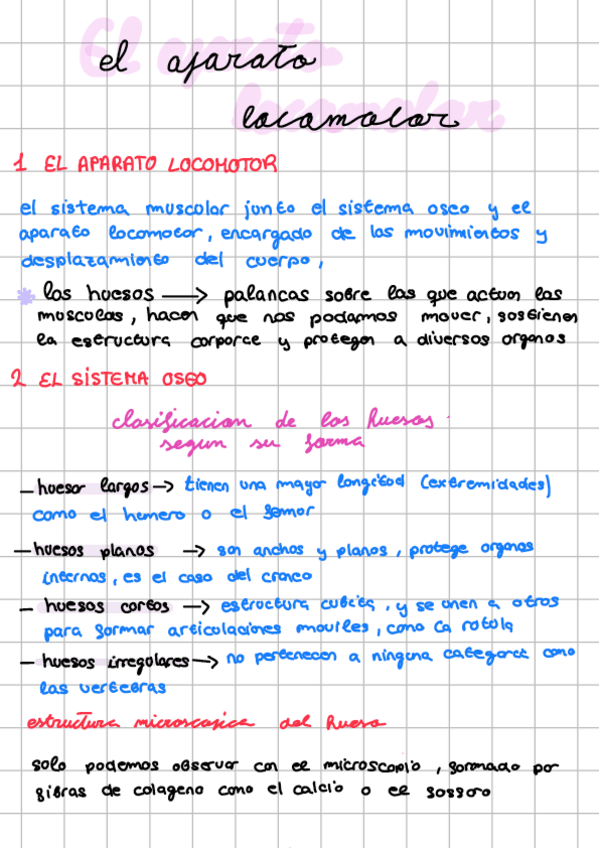 el aparato
locomotor
1 EL APARATO LOCOMOTOR
el sistema muscular junto el sistema oseo y el
aparato locomotor, encargado de los movimientos y
desplazamiento del cuerpo,
los huesos → palancas sobre las que actuan los
musculos, hacen que nos podamos mover, sostienen
la estructura corporce y protegen a diversos organos
2 EL SISTEMA OSEO
clasificacion de los huesos
segun su forma
- huesor largos → tienen una mayor longitod (extremidades)
como el humero o el femor
- huesos planos → son anchos y planos, protege organos
internos, es el caso del craneo
- huesos cortos → estructura cubica, y se unen a otros
para formar articulaciones moviles, como la rotula
- huesos irregulares → no pertenecen a ninguna categoria como
las vertebras
estructura microscopica del hueso
solo podemos observar con el microscopio, formado por
fibras de colageno como el calcio o el fosforo